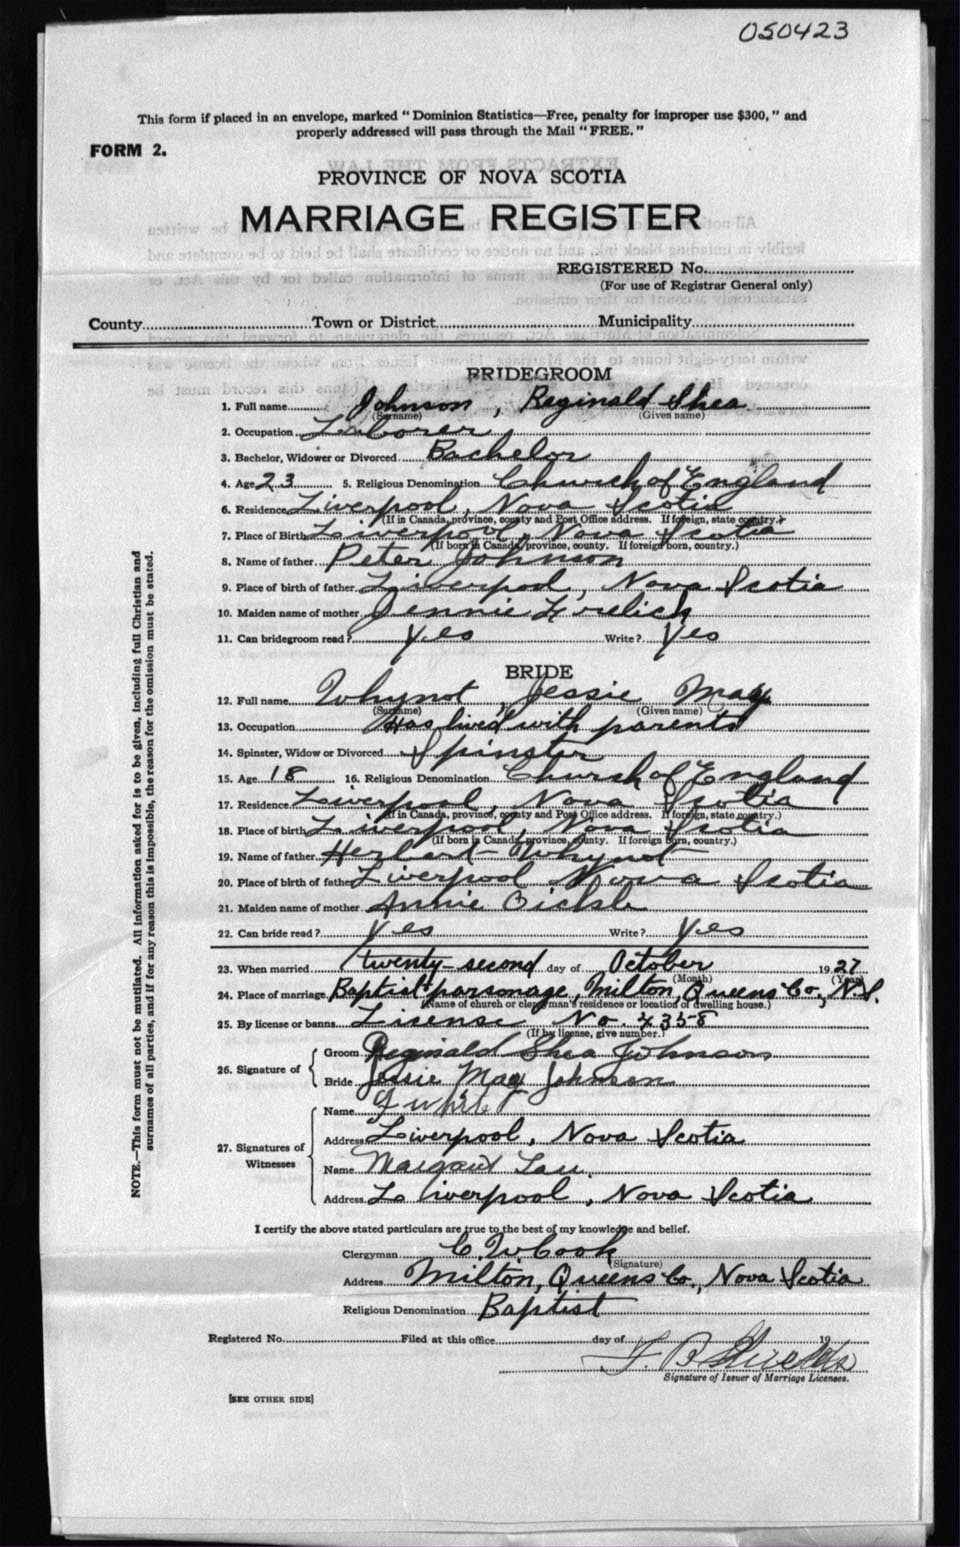 050423
This form if placed in an envelope, marked "Dominion Statistics—Free, penalty for improper use $300," and
properly addressed will pass through the Mail "FREE."
FORM 2.
PROVINCE OF NOVA SCOTIA
MARRIAGE REGISTER
REGISTERED No.
(For use of Registrar General only)
County Town or District Municipality
BRIDEGROOM
1. Full name Johnson, Reginald Shea
(Surname) (Given name)
2. Occupation Laborer
3. Bachelor, Widower or Divorced Bachelor
4. Age 23 5. Religious Denomination Church of England
6. Residence Liverpool, Nova Scotia
(If in Canada, province, county and Post Office address. If foreign, state country.)
7. Place of Birth Liverpool, Nova Scotia
(If born in Canada, province, county. If foreign born, country.)
8. Name of father Peter Johnson
9. Place of birth of father Liverpool, Nova Scotia
10. Maiden name of mother Jennie Frelick
11. Can bridegroom read? Yes Write? Yes
BRIDE
12. Full name Whynot, Jessie May
(Surname) (Given name)
13. Occupation Has lived with parents
14. Spinster, Widow or Divorced Spinster
15. Age 18 16. Religious Denomination Church of England
17. Residence Liverpool, Nova Scotia
(If in Canada, province, county and Post Office address. If foreign, state country.)
18. Place of birth Liverpool, Nova Scotia
(If born in Canada, province, county. If foreign born, country.)
19. Name of father Herbert Whynot
20. Place of birth of father Liverpool Nova Scotia
21. Maiden name of mother Annie
22. Can bride read? Yes Write? Yes
23. When married twenty-second day of October 1927
(Month) (Year)
24. Place of marriage Baptist parsonage, Milton, Queens Co., N.S.
(Name of church or clergyman's residence or location of dwelling house.)
25. By license or banns License No. 4358
(If by license, give number.)
26. Signature of Groom Reginald Shea Johnson
Bride Jessie May Johnson
27. Signatures of Witnesses Name
Address Liverpool, Nova Scotia
Name Margaret
Address Liverpool, Nova Scotia
I certify the above stated particulars are true to the best of my knowledge and belief.
Clergyman C. W. Cook
(Signature)
Address Milton, Queens Co., Nova Scotia
Religious Denomination Baptist
Registered No. Filed at this office day of 19
Signature of Issuer of Marriage Licenses.
[SEE OTHER SIDE]
NOTE.—This form must not be mutilated. All information asked for is to be given, including full Christian and
surnames of all parties, and if for any reason this is impossible, the reason for the omission must be stated.